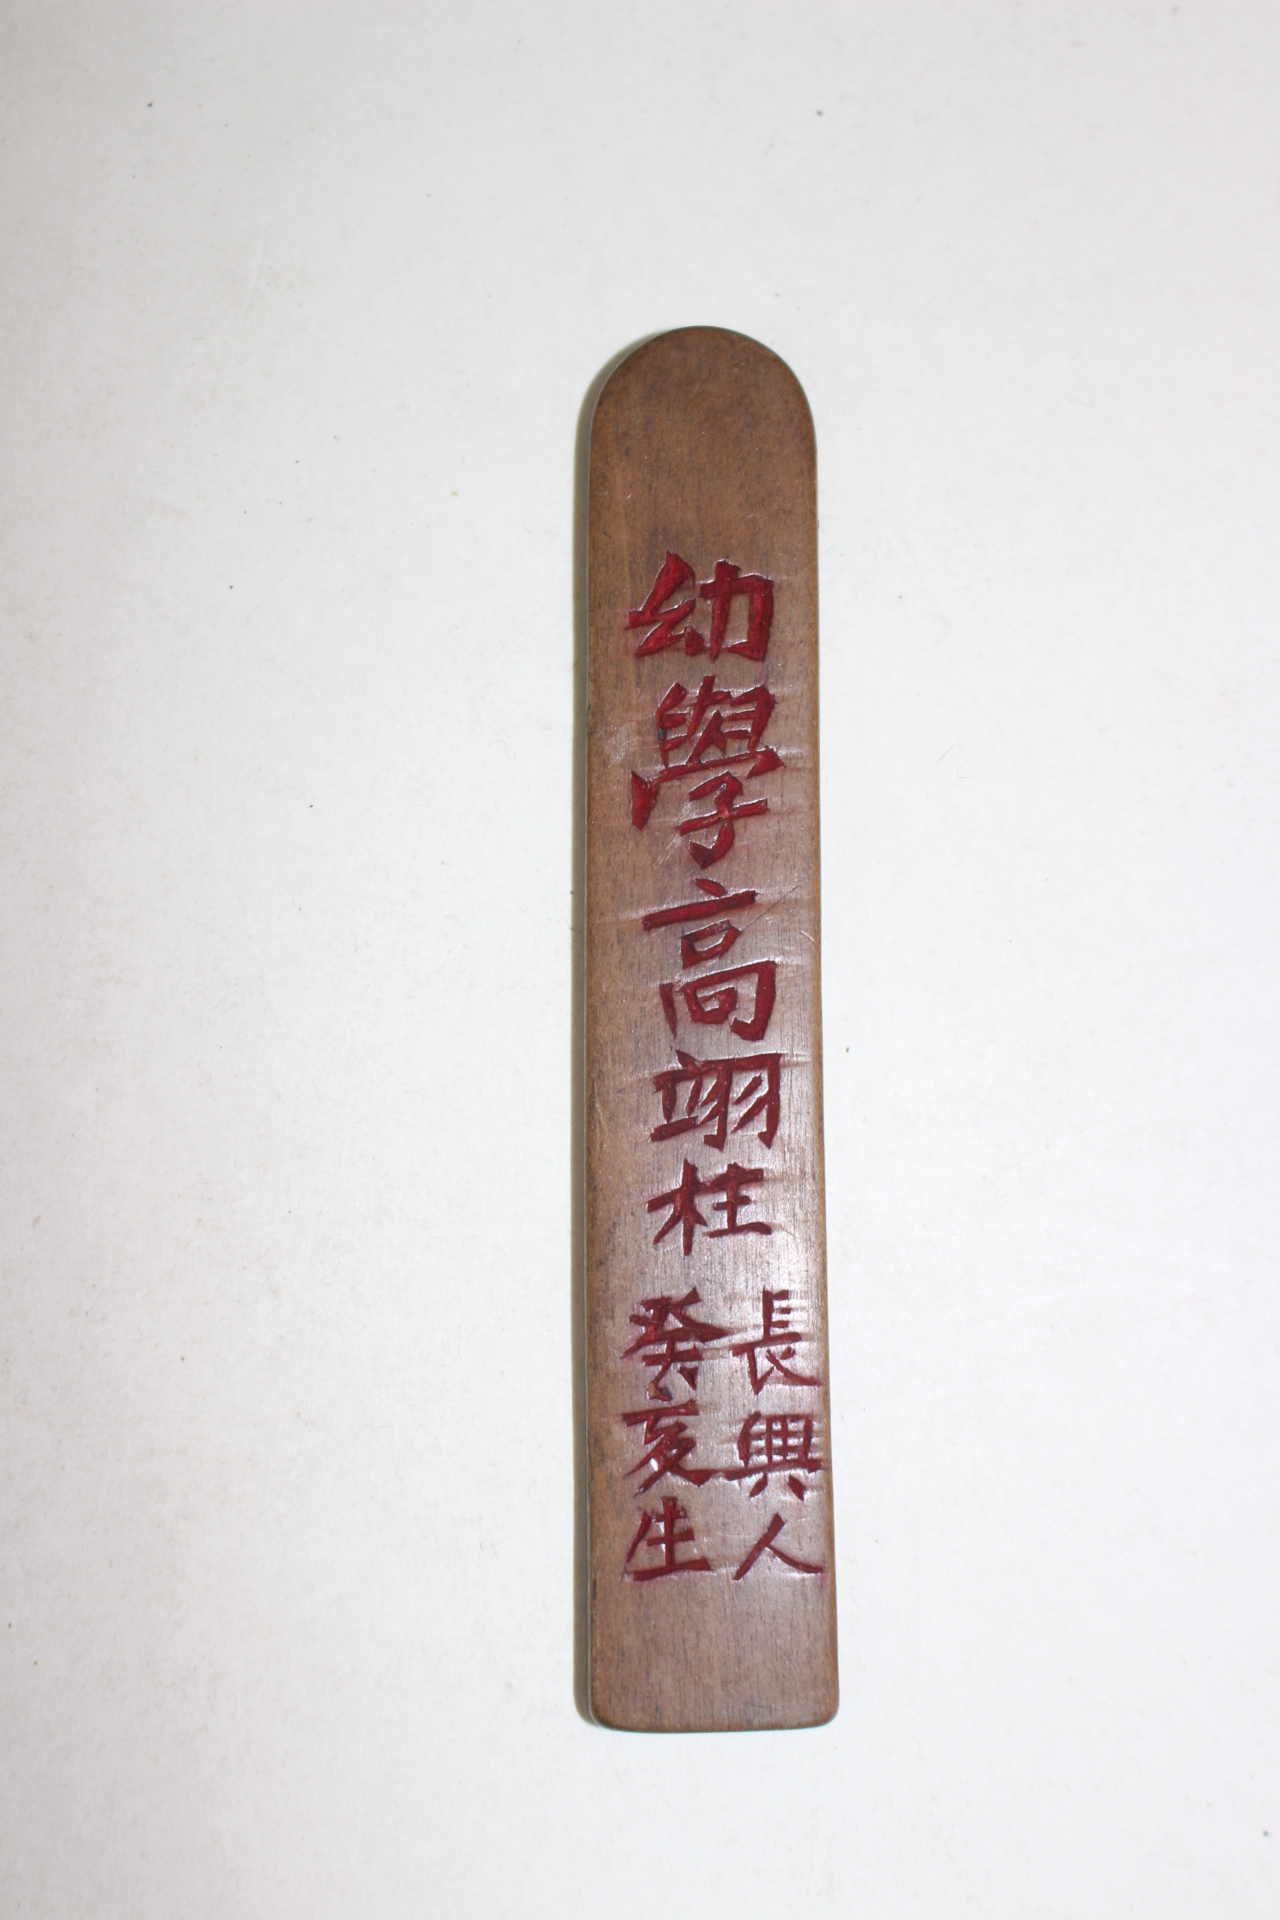 幼學高翊柱
長興人
癸亥生